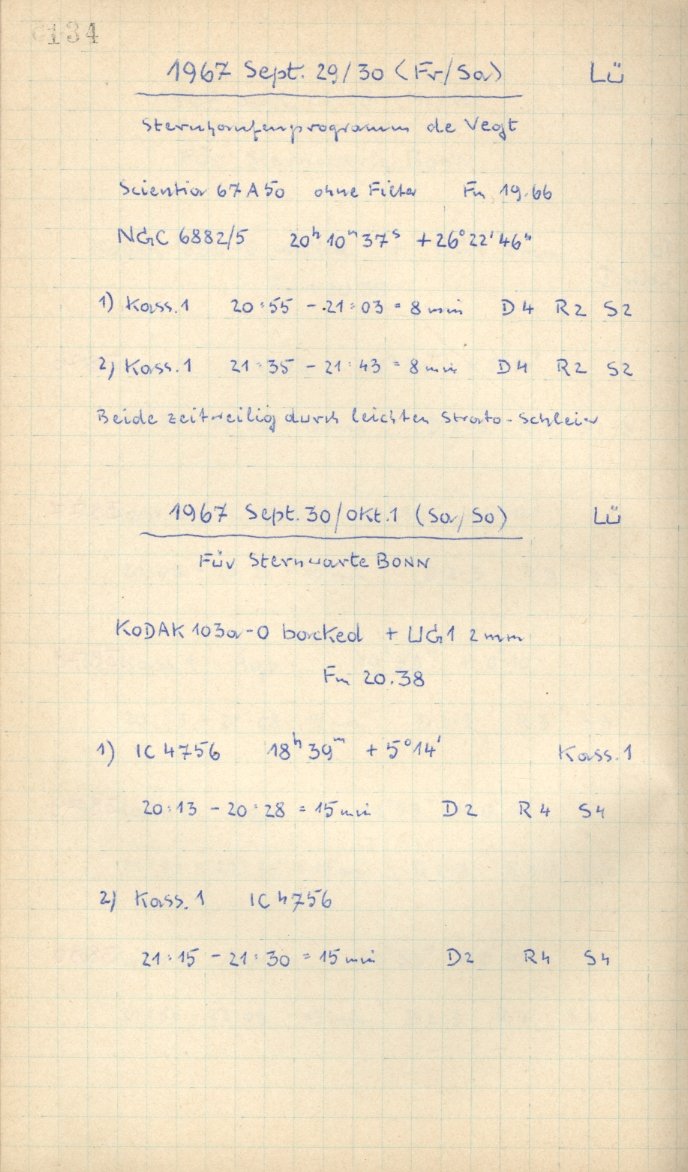 134
1967 Sept. 29/30 (Fr/Sa) Lü
Sternhaufenprogramm de Vegt
Scientia 67A50 ohne Filter Fm 19.66
NGC 6882/5 20ʰ10ᵐ37ˢ +26°22'46"
1) Kass.1 20:55 - 21:03 = 8 min D4 R2 S2
2) Kass.1 21:35 - 21:43 = 8 min D4 R2 S2
Beide zeitweilig durch leichten Strato-Schleier
1967 Sept. 30/Okt.1 (Sa/So) Lü
Für Sternwarte BONN
KODAK 103a-O backed + UG1 2mm
Fm 20.38
1) IC 4756 18ʰ39ᵐ +5°14' Kass.1
20:13 - 20:28 = 15 min D2 R4 S4
2) Kass.1 IC 4756
21:15 - 21:30 = 15 min D2 R4 S4